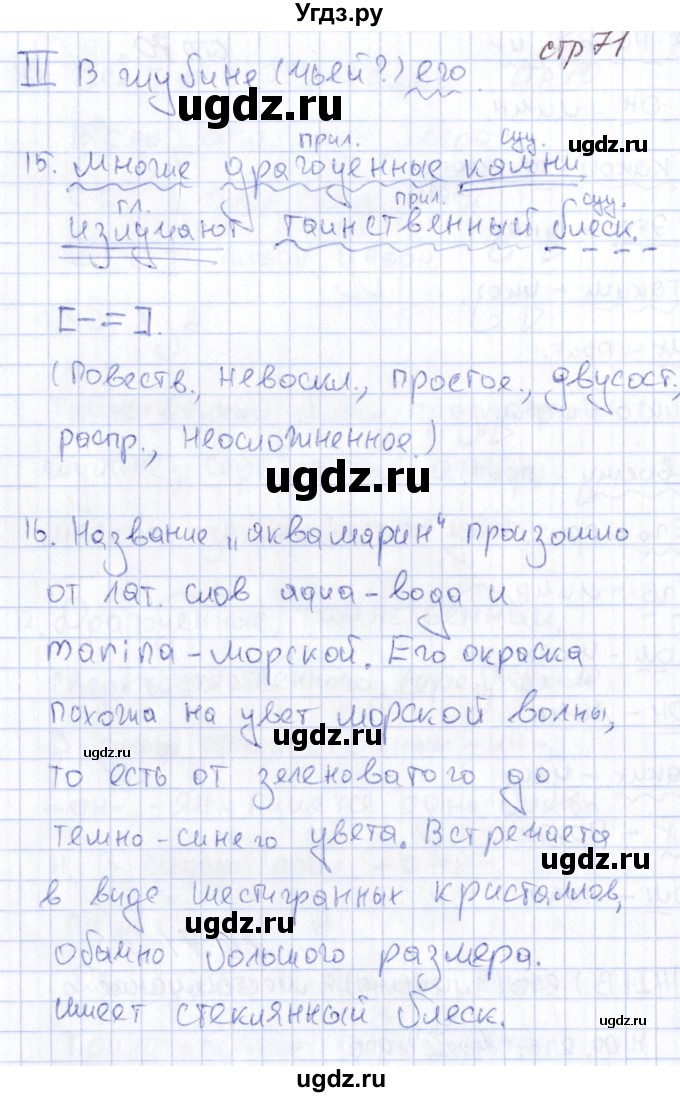 Угдз.ру
стр 71
III В глубине (чьей?) его.
ugdz.ru
ugdz.ru
прил. сущ.
15. Многие драгоценные камни
гл. прил. сущ.
излучают таинственный блеск.
[-=].
ugdz.ru
(Повеств., невоскл., простое., двусост.,
распр., неосложненное.)
ugdz.ru
16. Название „аквамарин“ произошло
ugdz.ru
от лат. слов aqua - вода и
marina - морской. Его окраска
похожа на цвет морской волны,
ugdz.ru
ugdz.ru
то есть от зеленоватого до
темно-синего цвета. Встречаетя
ugdz.ru
в виде шестигранных кристаллов,
ugdz.ru
обычно большого размера.
Имеет стеклянный блеск.
ugdz.ru
ugdz.ru